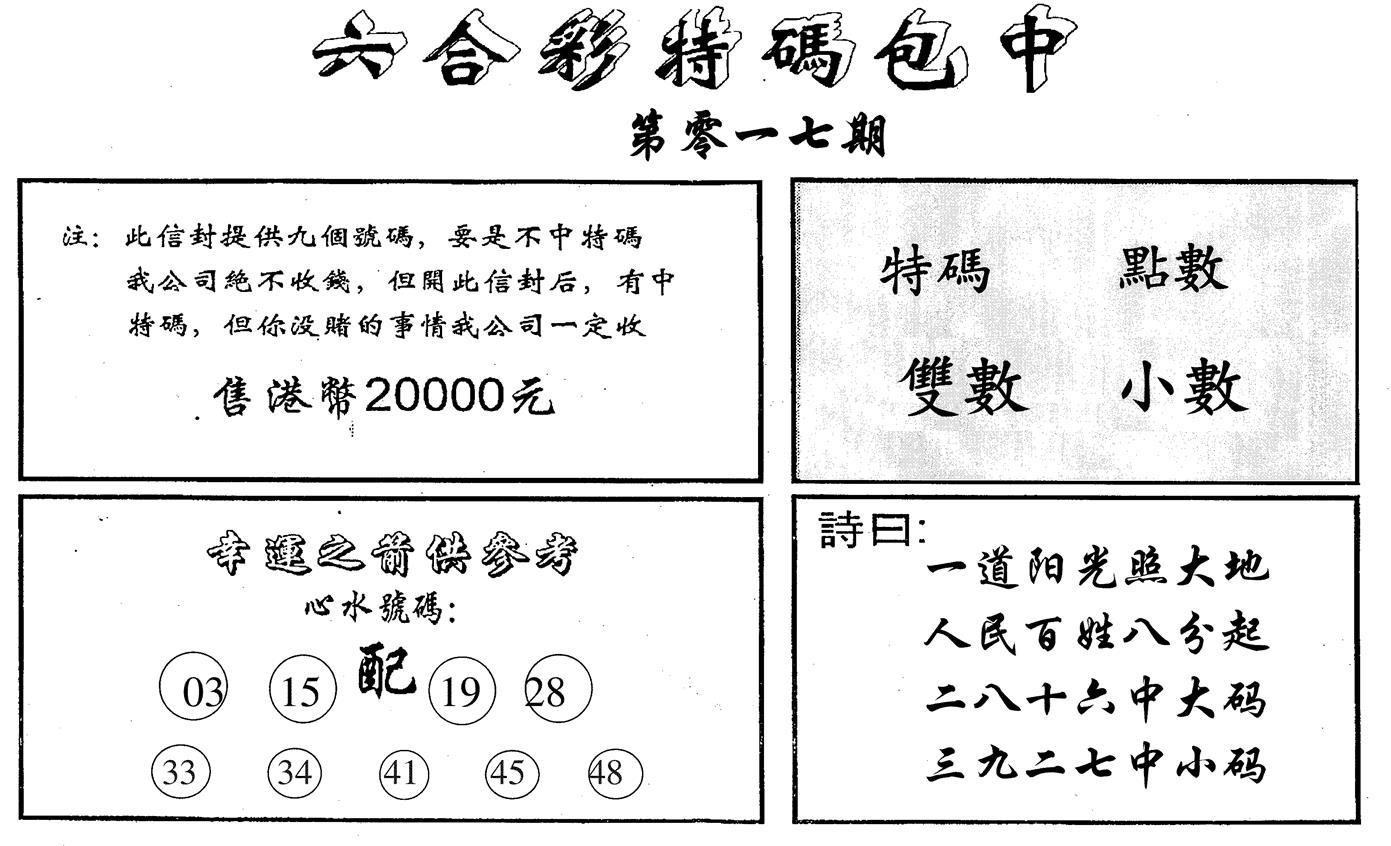 六合彩特碼包中
第零一七期
注：此信封提供九個號碼，要是不中特碼
我公司絕不收錢，但開此信封后，有中
特碼，但你没賭的事情我公司一定收
售港幣20000元
特碼 點數
雙數 小數
幸運之箭供參考
心水號碼：
03 15 配 19 28
33 34 41 45 48
詩曰：
一道阳光照大地
人民百姓八分起
二八十六中大码
三九二七中小码